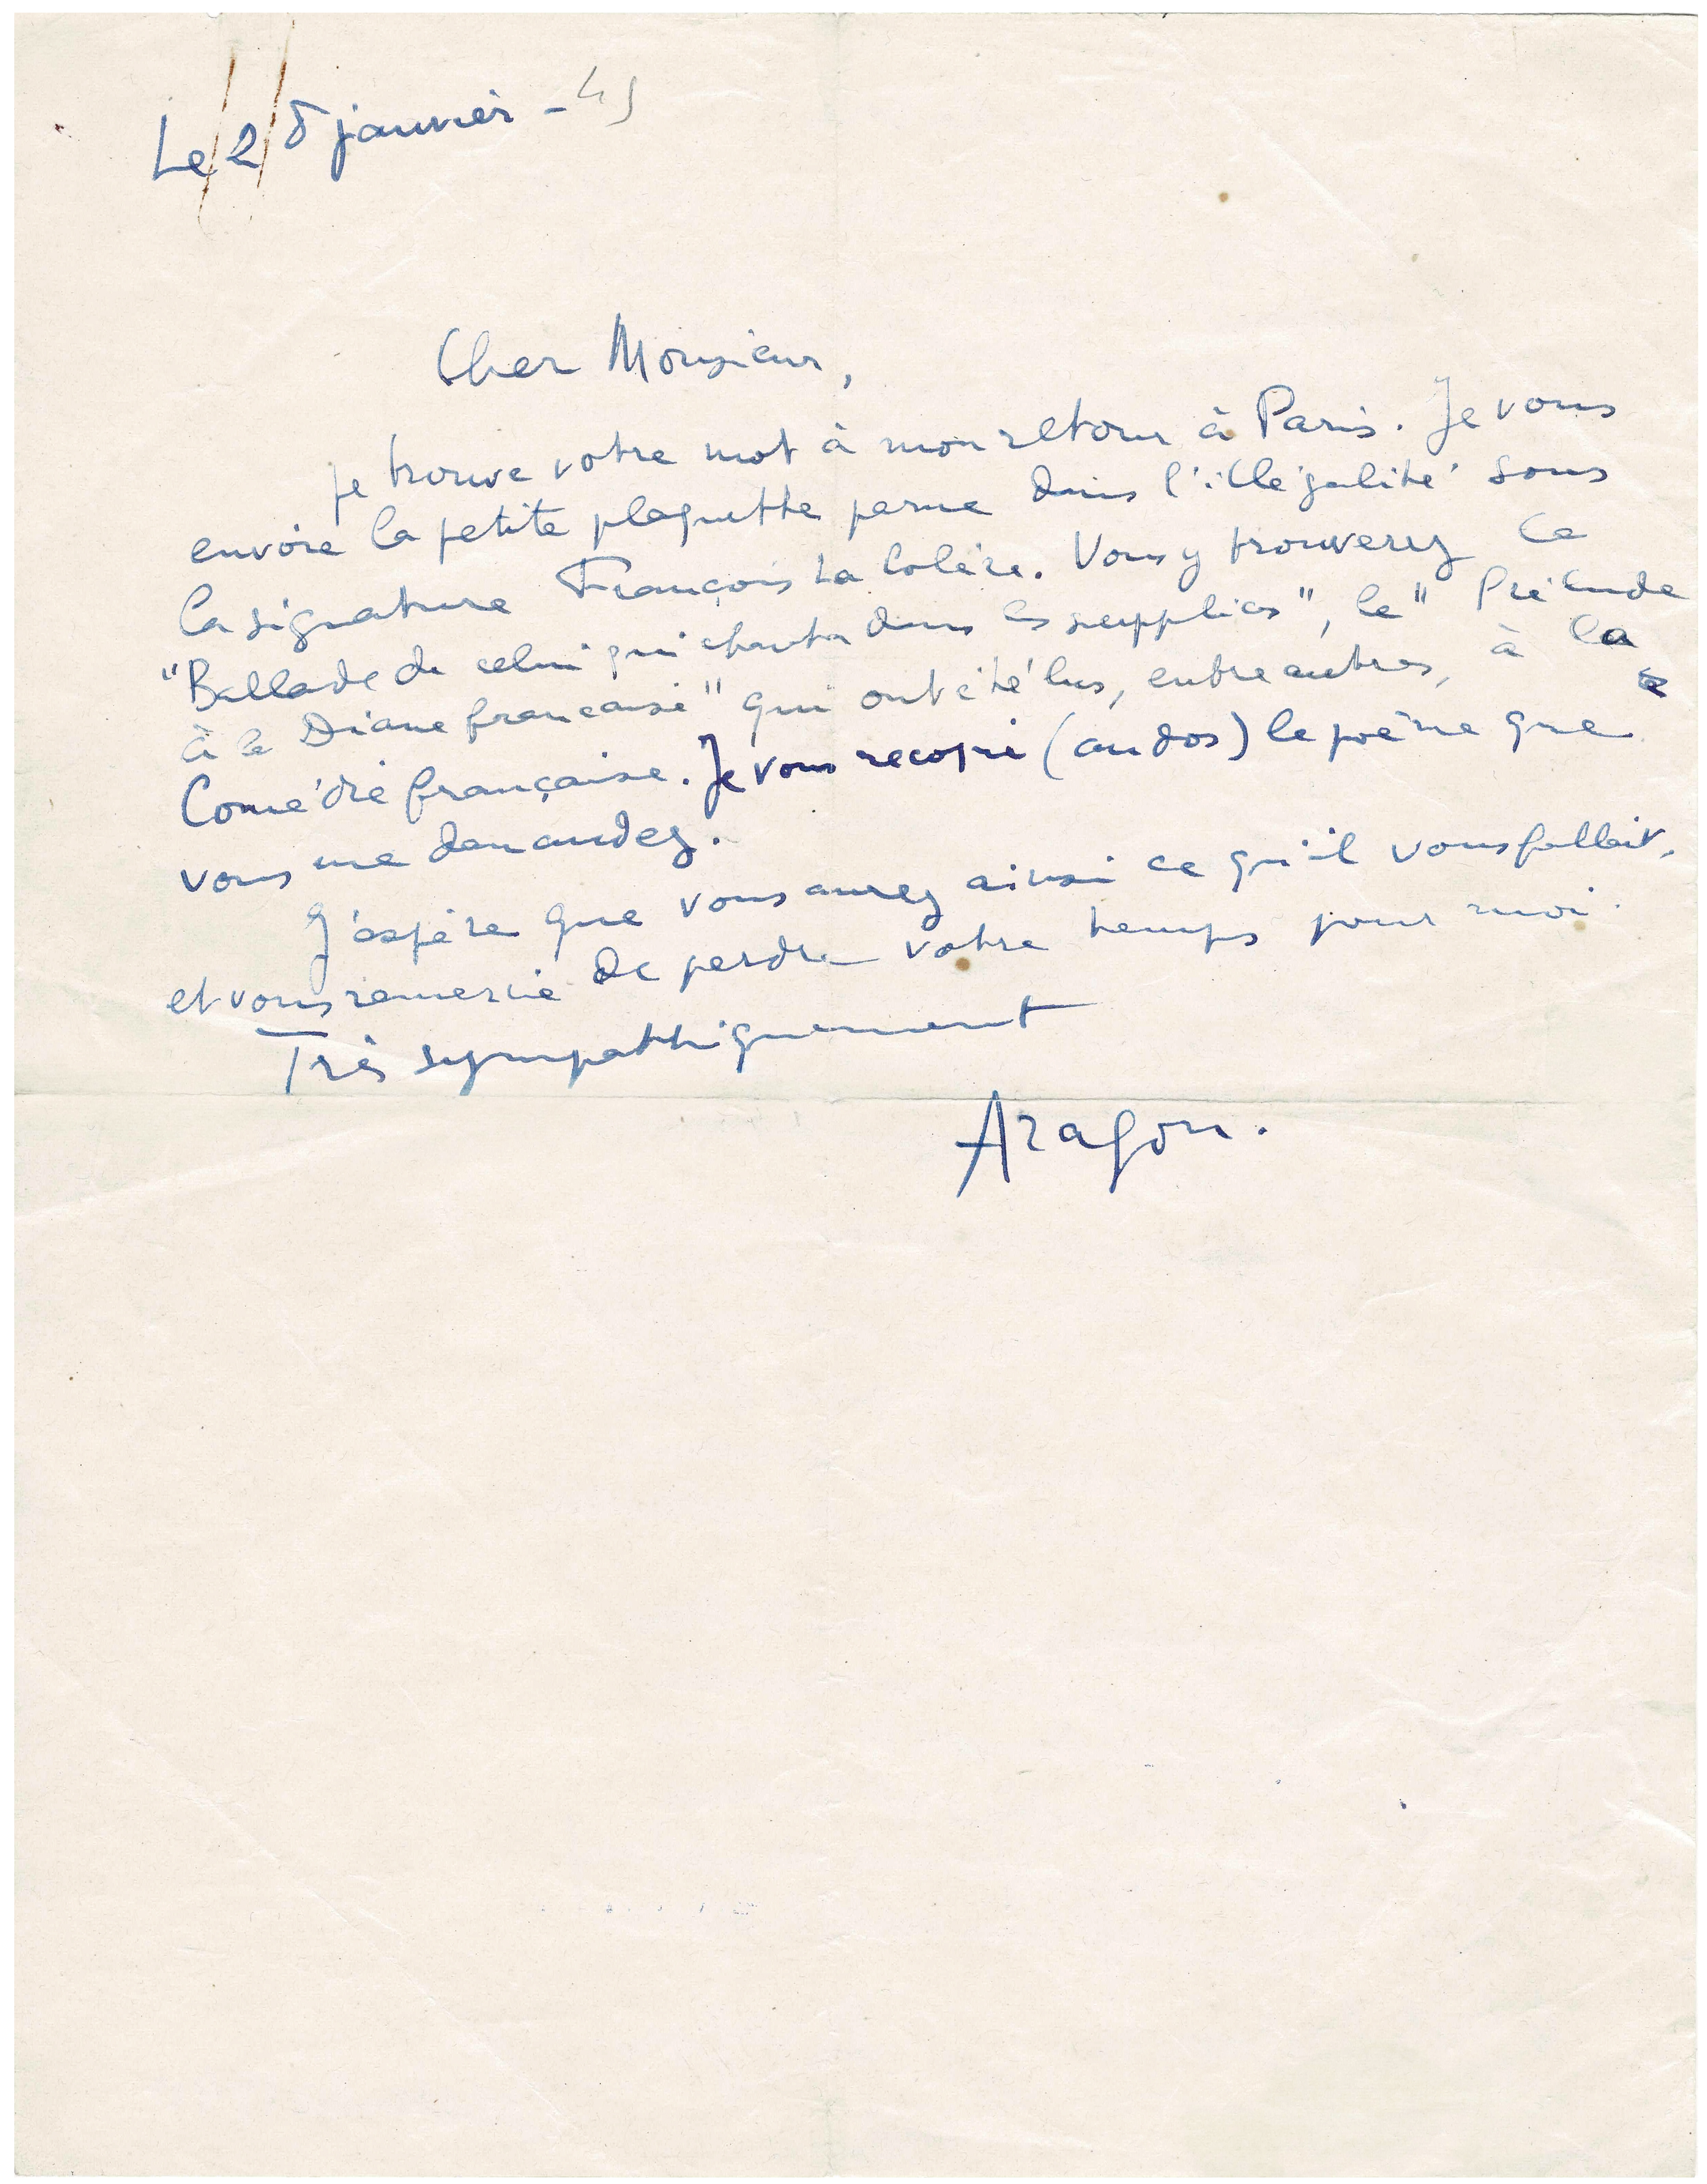 Le 28 janvier - 45
Cher Monsieur,
je trouve votre mot à mon retour à Paris. Je vous
envoie la petite plaquette parue dans l'illégalité sous
la signature François La Colère. Vous y trouverez la
"Ballade de celui qui chanta dans les supplices", le "Prélude
à la Diane française" qui ont été lus, entre autres, à la
Comédie française. Je vous recopie (au dos) le poème que
vous me demandez.
J'espère que vous aurez ainsi ce qu'il vous fallait,
et vous remercie de perdre votre temps pour moi.
Très sympathiquement
Aragon.